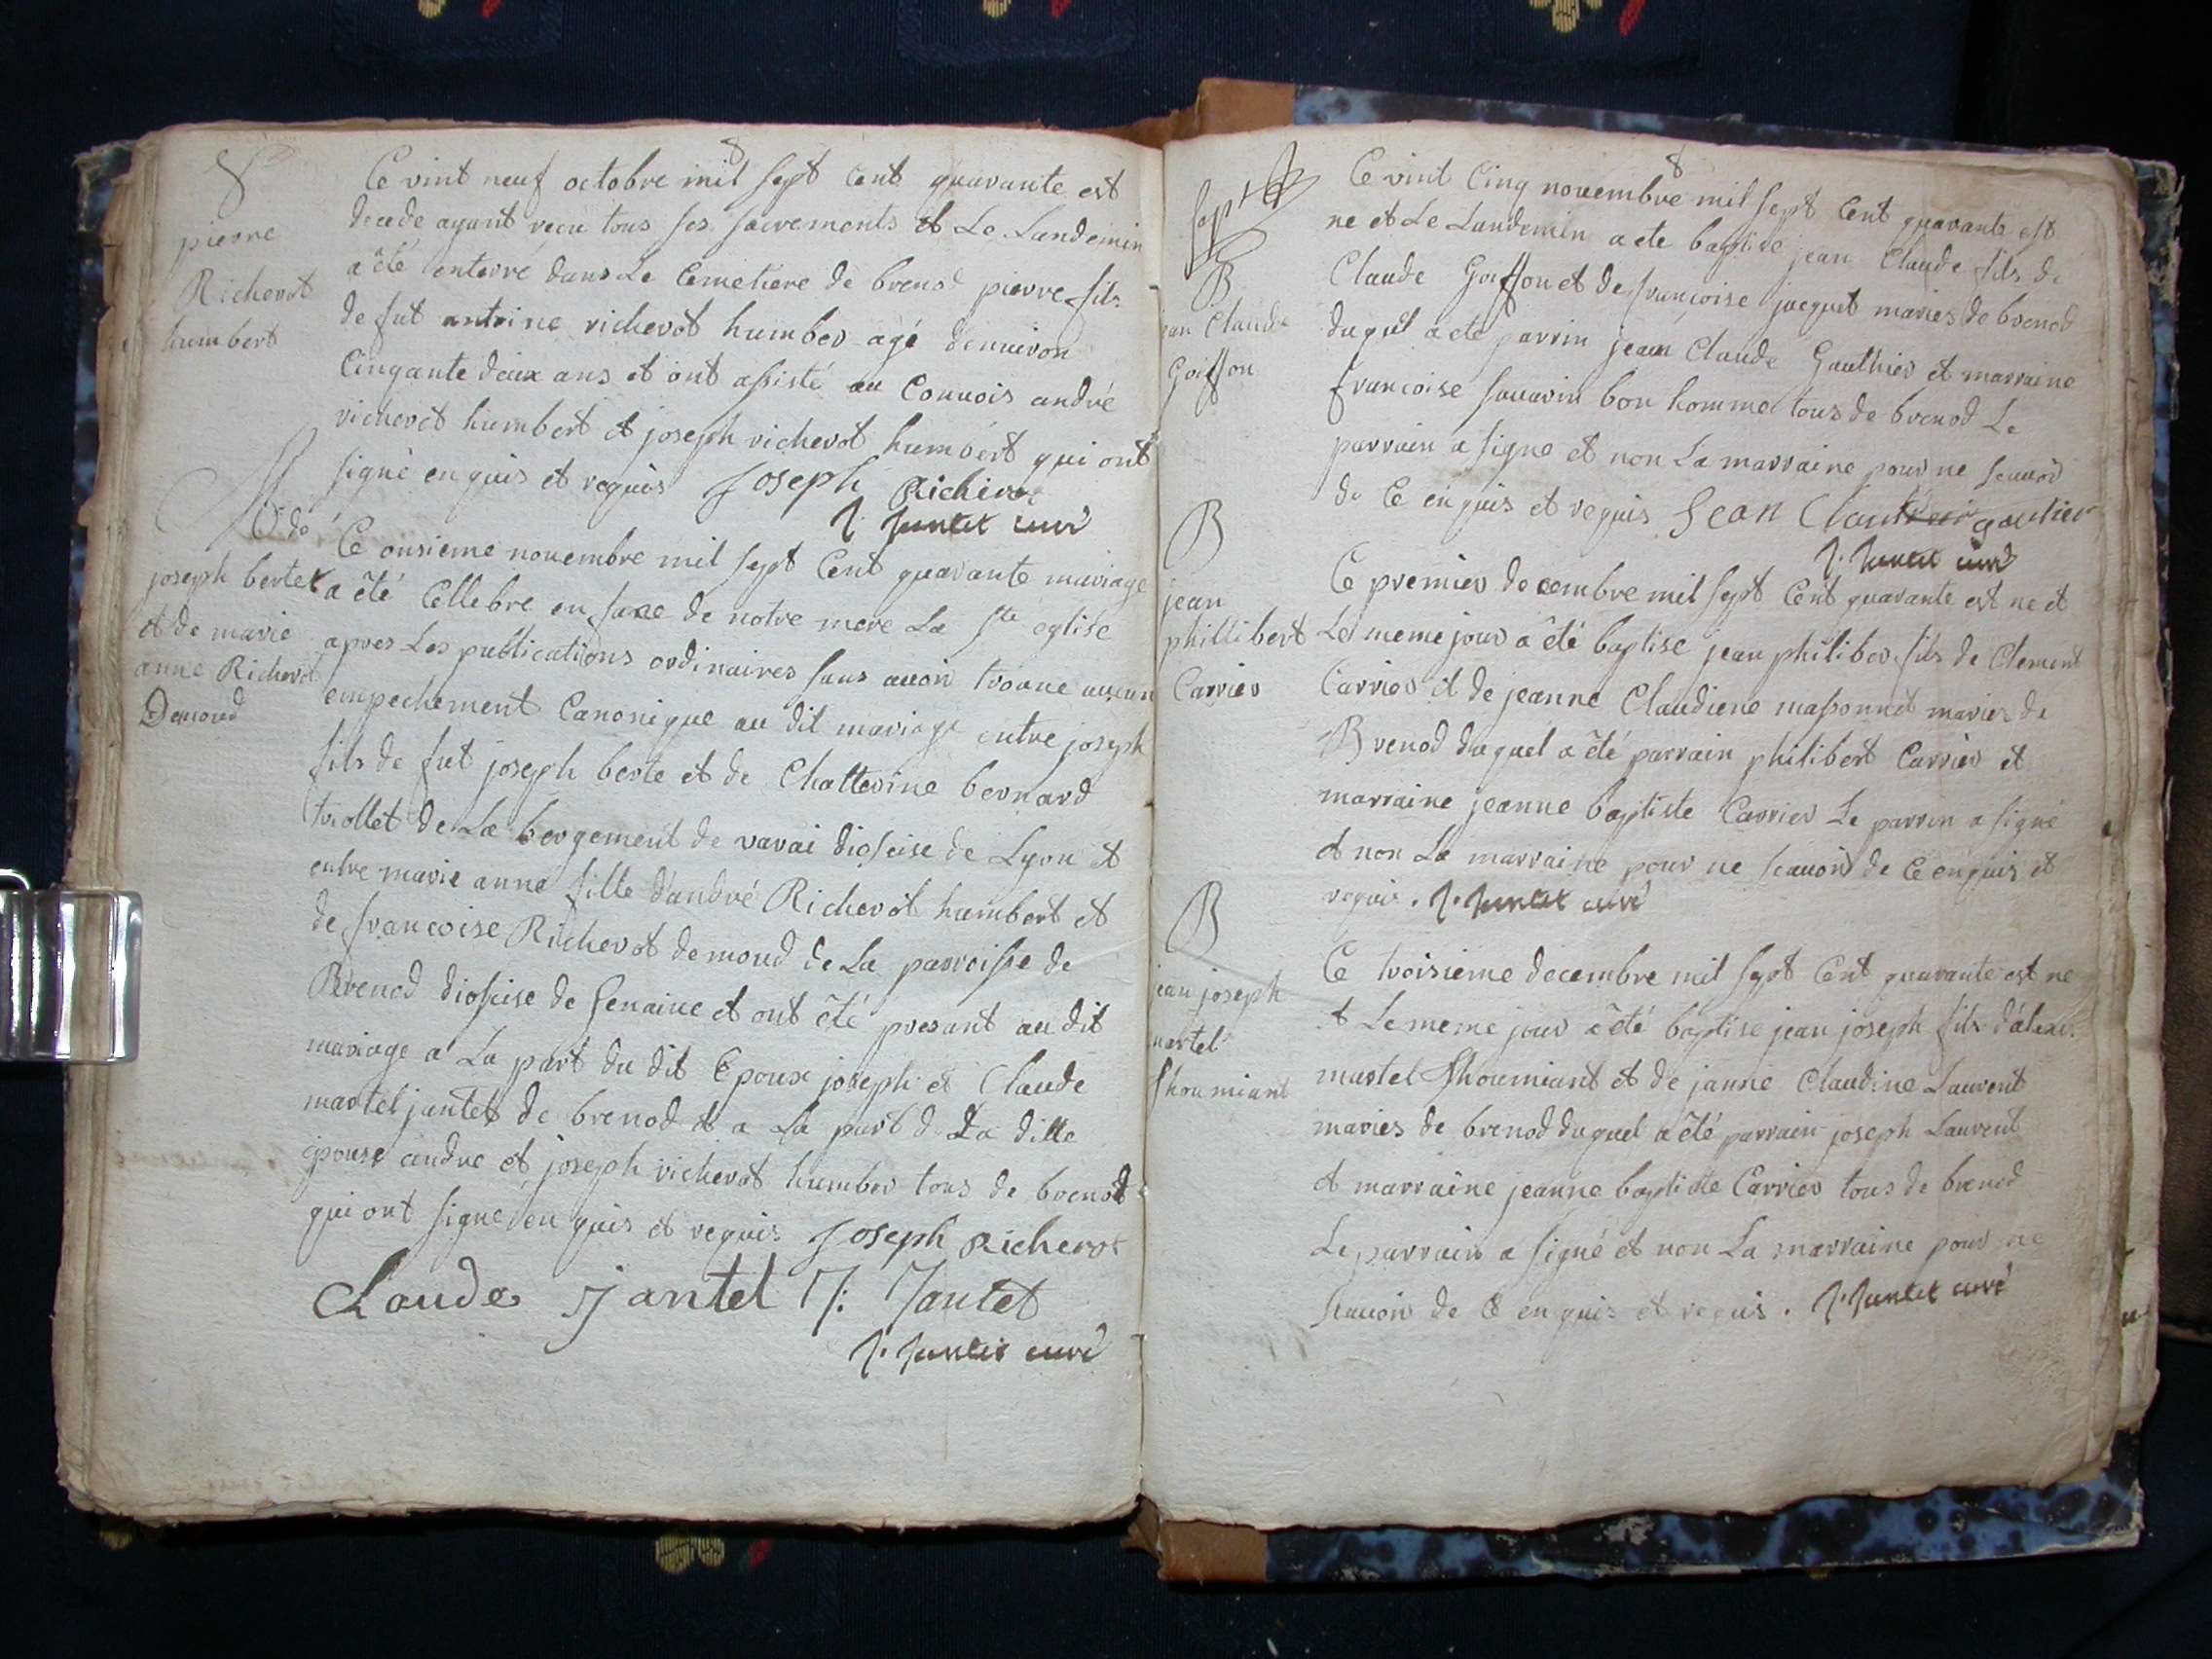 pierre
Richerot
humbert
Ce vint neuf octobre mil sept cent quarante est
decede ayant reçu tous ses sacrements et Le Landemin
a été enterré dans Le Cemetiere de brenod pierre fils
de fut antoine richerot humber agé denuiron
Cinquante deux ans et ont assisté au Conuois andré
richerot humbert et joseph richerot humbert qui ont
signé enquis et requis Joseph Richerot
J. Jantet curé
M
joseph bertet
et de marie
anne Richerot
Demoud
Ce onsieme nouembre mil sept Cent quarante mariage
a été Cellebre en face de notre mere La Ste eglise
apres Les publications ordinaires sans auoir trouue aucun
empechement Canonique au dit mariage entre joseph
fils de fut joseph berte et de Chatterine bernard
triollet de La bergement de varai diosoise de Lyon et
entre marie anne fille d'andré Richerot humbert et
de francoise Richerot demoud de La parroisse de
Brenod diosoise de Genaiue et ont été presant au dit
mariage a La part du dit Epoux joseph et Claude
martel jantet de brenod et a La part de La ditte
epouse andre et joseph richerot humber tous de brenod
qui ont signé enquis et requis Joseph Richerot
Claude Jantet J: Jantet
J. Jantet curé
sept
B
jean Claude
Goiffon
Ce vint Cinq nouembre mil sept Cent quarante est
ne et Le Landemin a ete baptise jean Claude fils de
Claude Goiffon et de françoise jacquet maries de brenod
duquel a ete parrin jean Claude Gauthier et marraine
francoise sauarin bon homme tous de brenod Le
parrain a signe et non La marraine pour ne scauoir
de Ce enquis et requis Jean Claude gautier
J. Jantet curé
B
jean
phillibert
Carrier
Ce premier decembre mil sept Cent quarante est ne et
Le meme jour a été baptise jean philiber fils de Clement
Carrier et de jeanne Claudiene massonnet maries de
Brenod duquel a été parrain philibert Carrier et
marraine jeanne baptiste Carrier Le parrin a signé
et non La marraine pour ne scauoir de Ce enquis et
requis. J. Jantet curé
B
jean joseph
martel
Ce troisieme decembre mil sept Cent quarante est ne
et Le meme jour a été baptise jean joseph fils d'alexis
martel et de janne Claudine Laurent
maries de brenod duquel a été parrain joseph Laurent
et marraine jeanne baptiste Carrier tous de brenod
Le parrain a signé et non La marraine pour ne
scauoir de Ce enquis et requis. J. Jantet curé